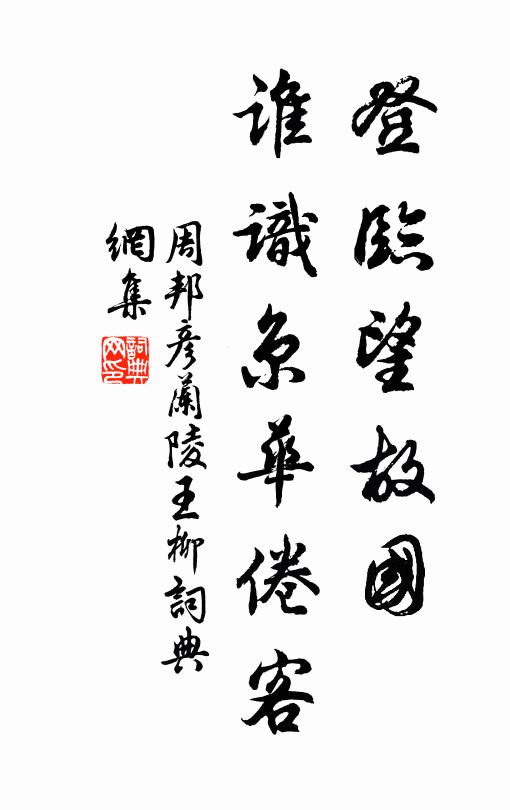 登臨望故國
誰識京華倦客
周邦彥蘭陵王柳詞典
網集
詞典网印